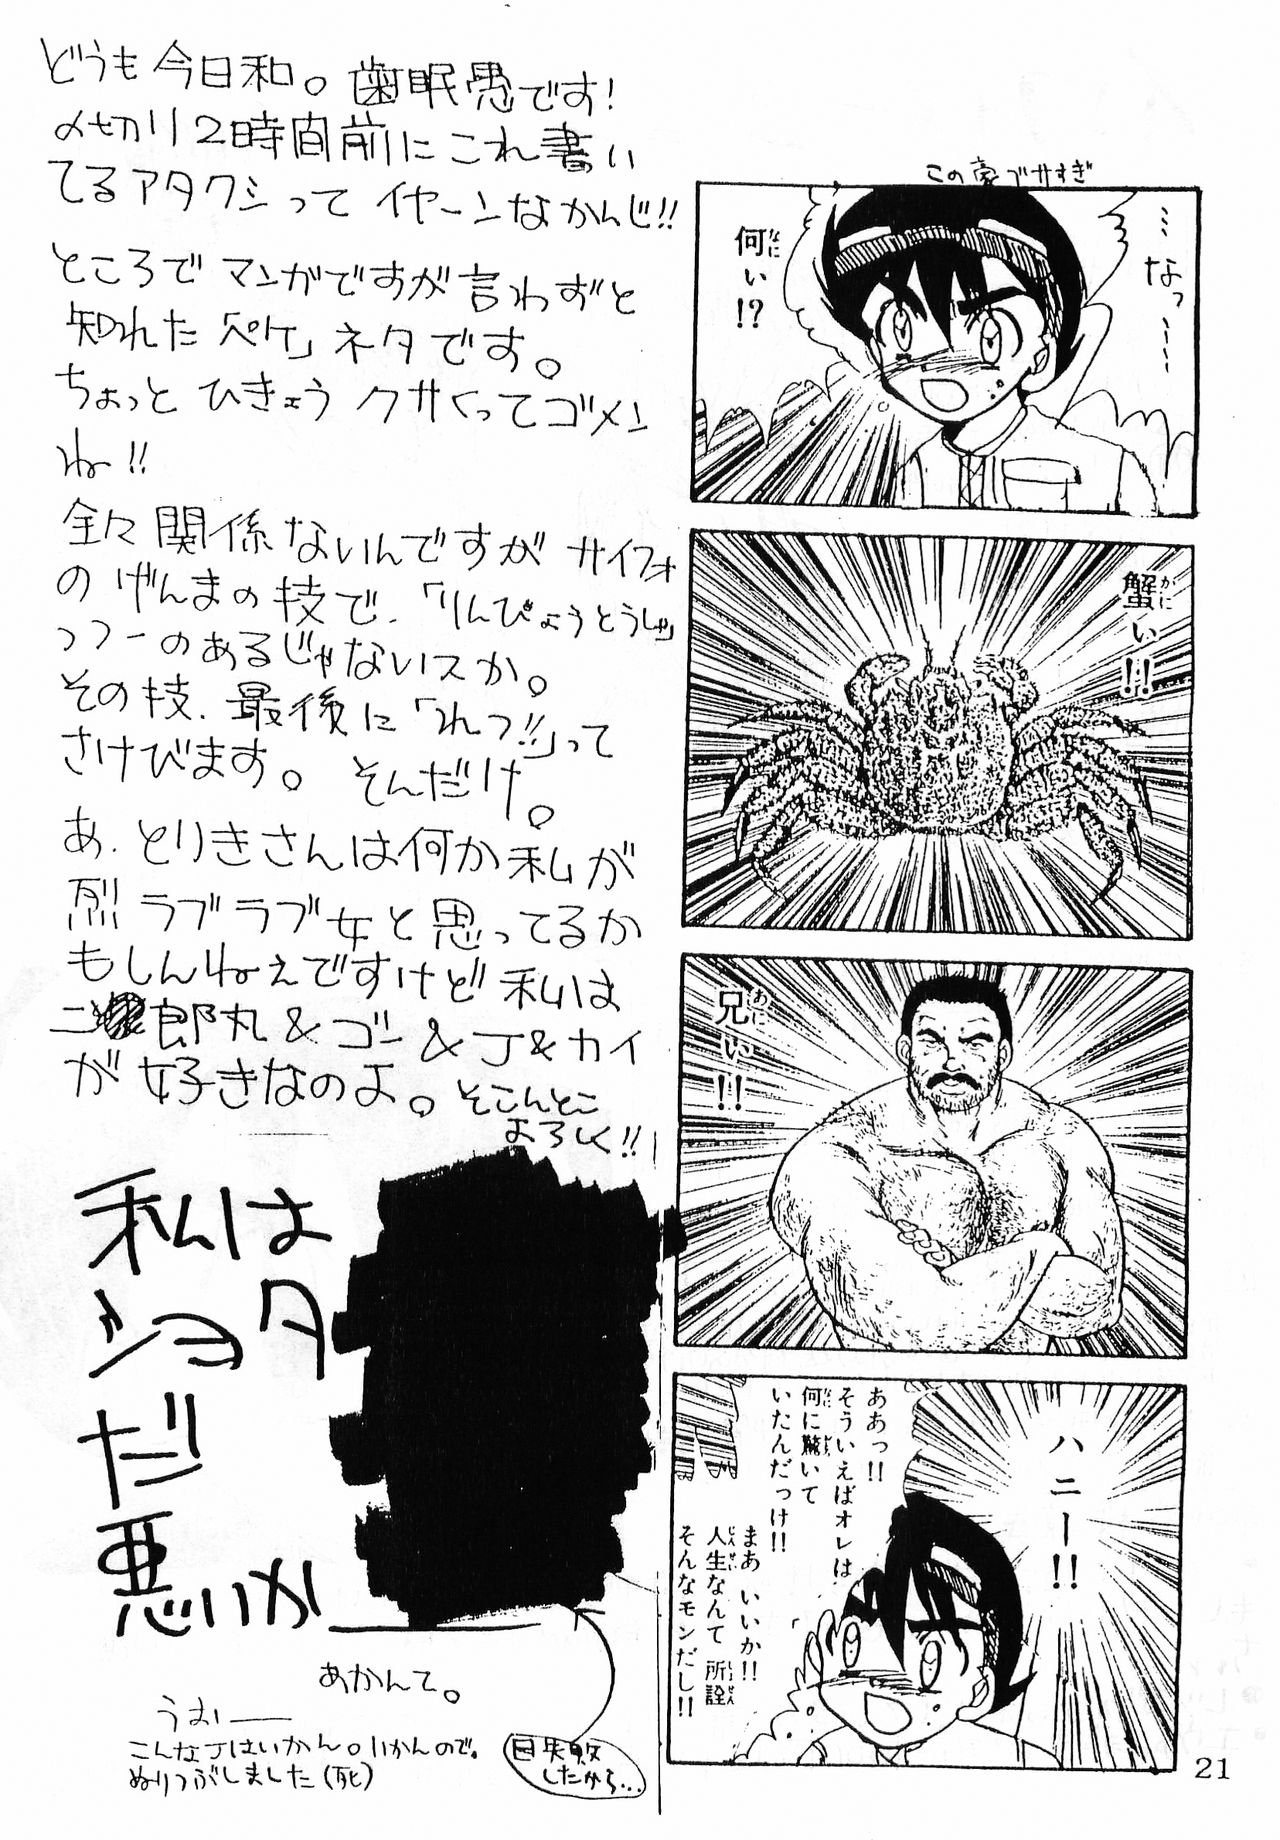 どうも今日和。歯眠愚です!
〆切り2時間前にこれ書い
てるアタクシって イヤーンなかんじ!!
ところで マンガですが言わずと
知れた「ペケ」ネタです。
ちょっと ひきょう クサくってゴメン
ね!!
全々関係ないんですが サイフォ
の げんまの技で、「りんぴょうとうしゃ」
っつーのあるじゃないスか。
その技、最後に「れつ!!」って
さけびます。 そんだけ。
あ、とりきさんは何か私が
烈ラブラブ女と思ってるか
もしんねぇですけど 私は
二郎丸&ゴン&J&カイ
が好きなのよ。そこんとこ
よろしく!!
私は
ショタ
だ
悪いか
あかんて。
うおー
こんなJはいかん。いかんので。
ぬりつぶしました(死)
目失敗
したから…
この豪ブサすぎ
…なっ——
何ぃ!?
蟹ぃ!!
兄ぃ!!
ハニー!!
ああっ!!
そういえばオレは
何に驚いて
いたんだっけ!!
まあ いいか!!
人生なんて 所詮
そんなモンだし!!
21